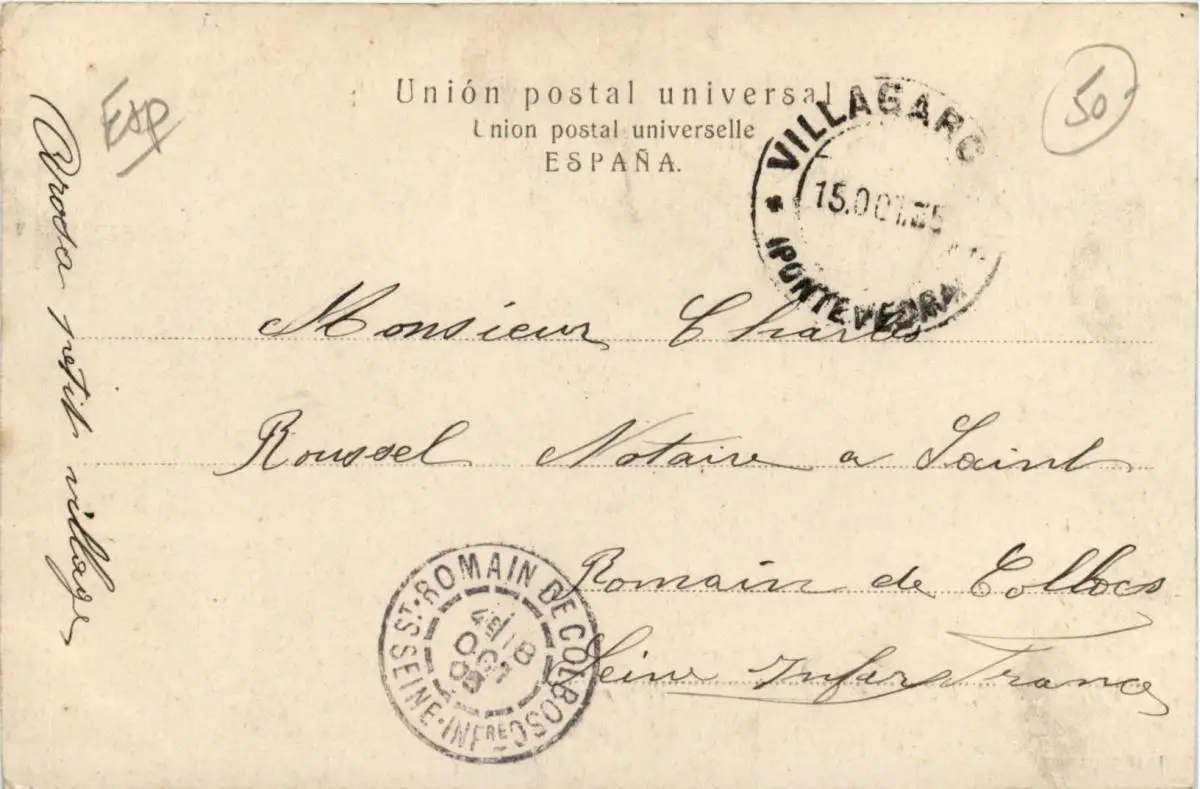 Esp
50
Unión postal universal
Union postal universelle
ESPAÑA.
VILLAGARC
15.OCT.05
(PONTEVEDRA)
Arosa petit village
Monsieur Charles
Roussel Notaire a Saint
Romain de Collocs
Seine Infer France
ST. ROMAIN DE COLBOSC
18
OCT
05
SEINE-INFRE